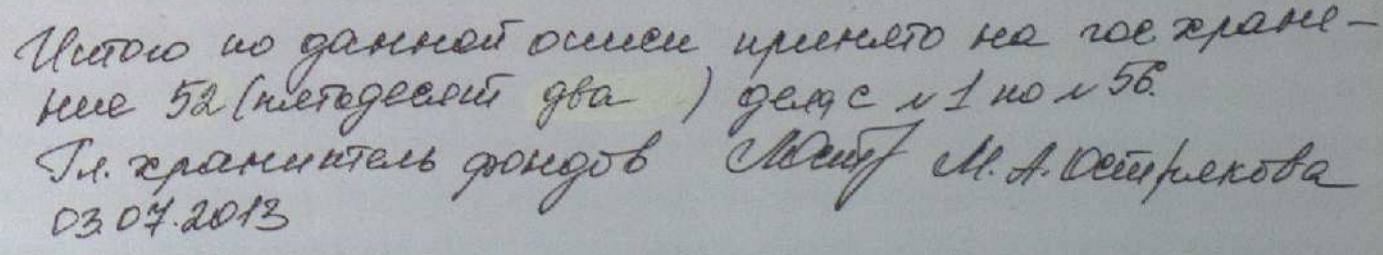 Итого по данной описи принято на госхране-
ние 52 (пятьдесят два ) дел, с №1 по №56.
Гл. хранитель фондов М. А. Острякова
03.07.2013